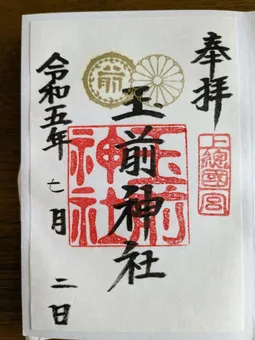 奉拝
上總國一宮
玉前神社
玉前神社
前
令和五年七月二日